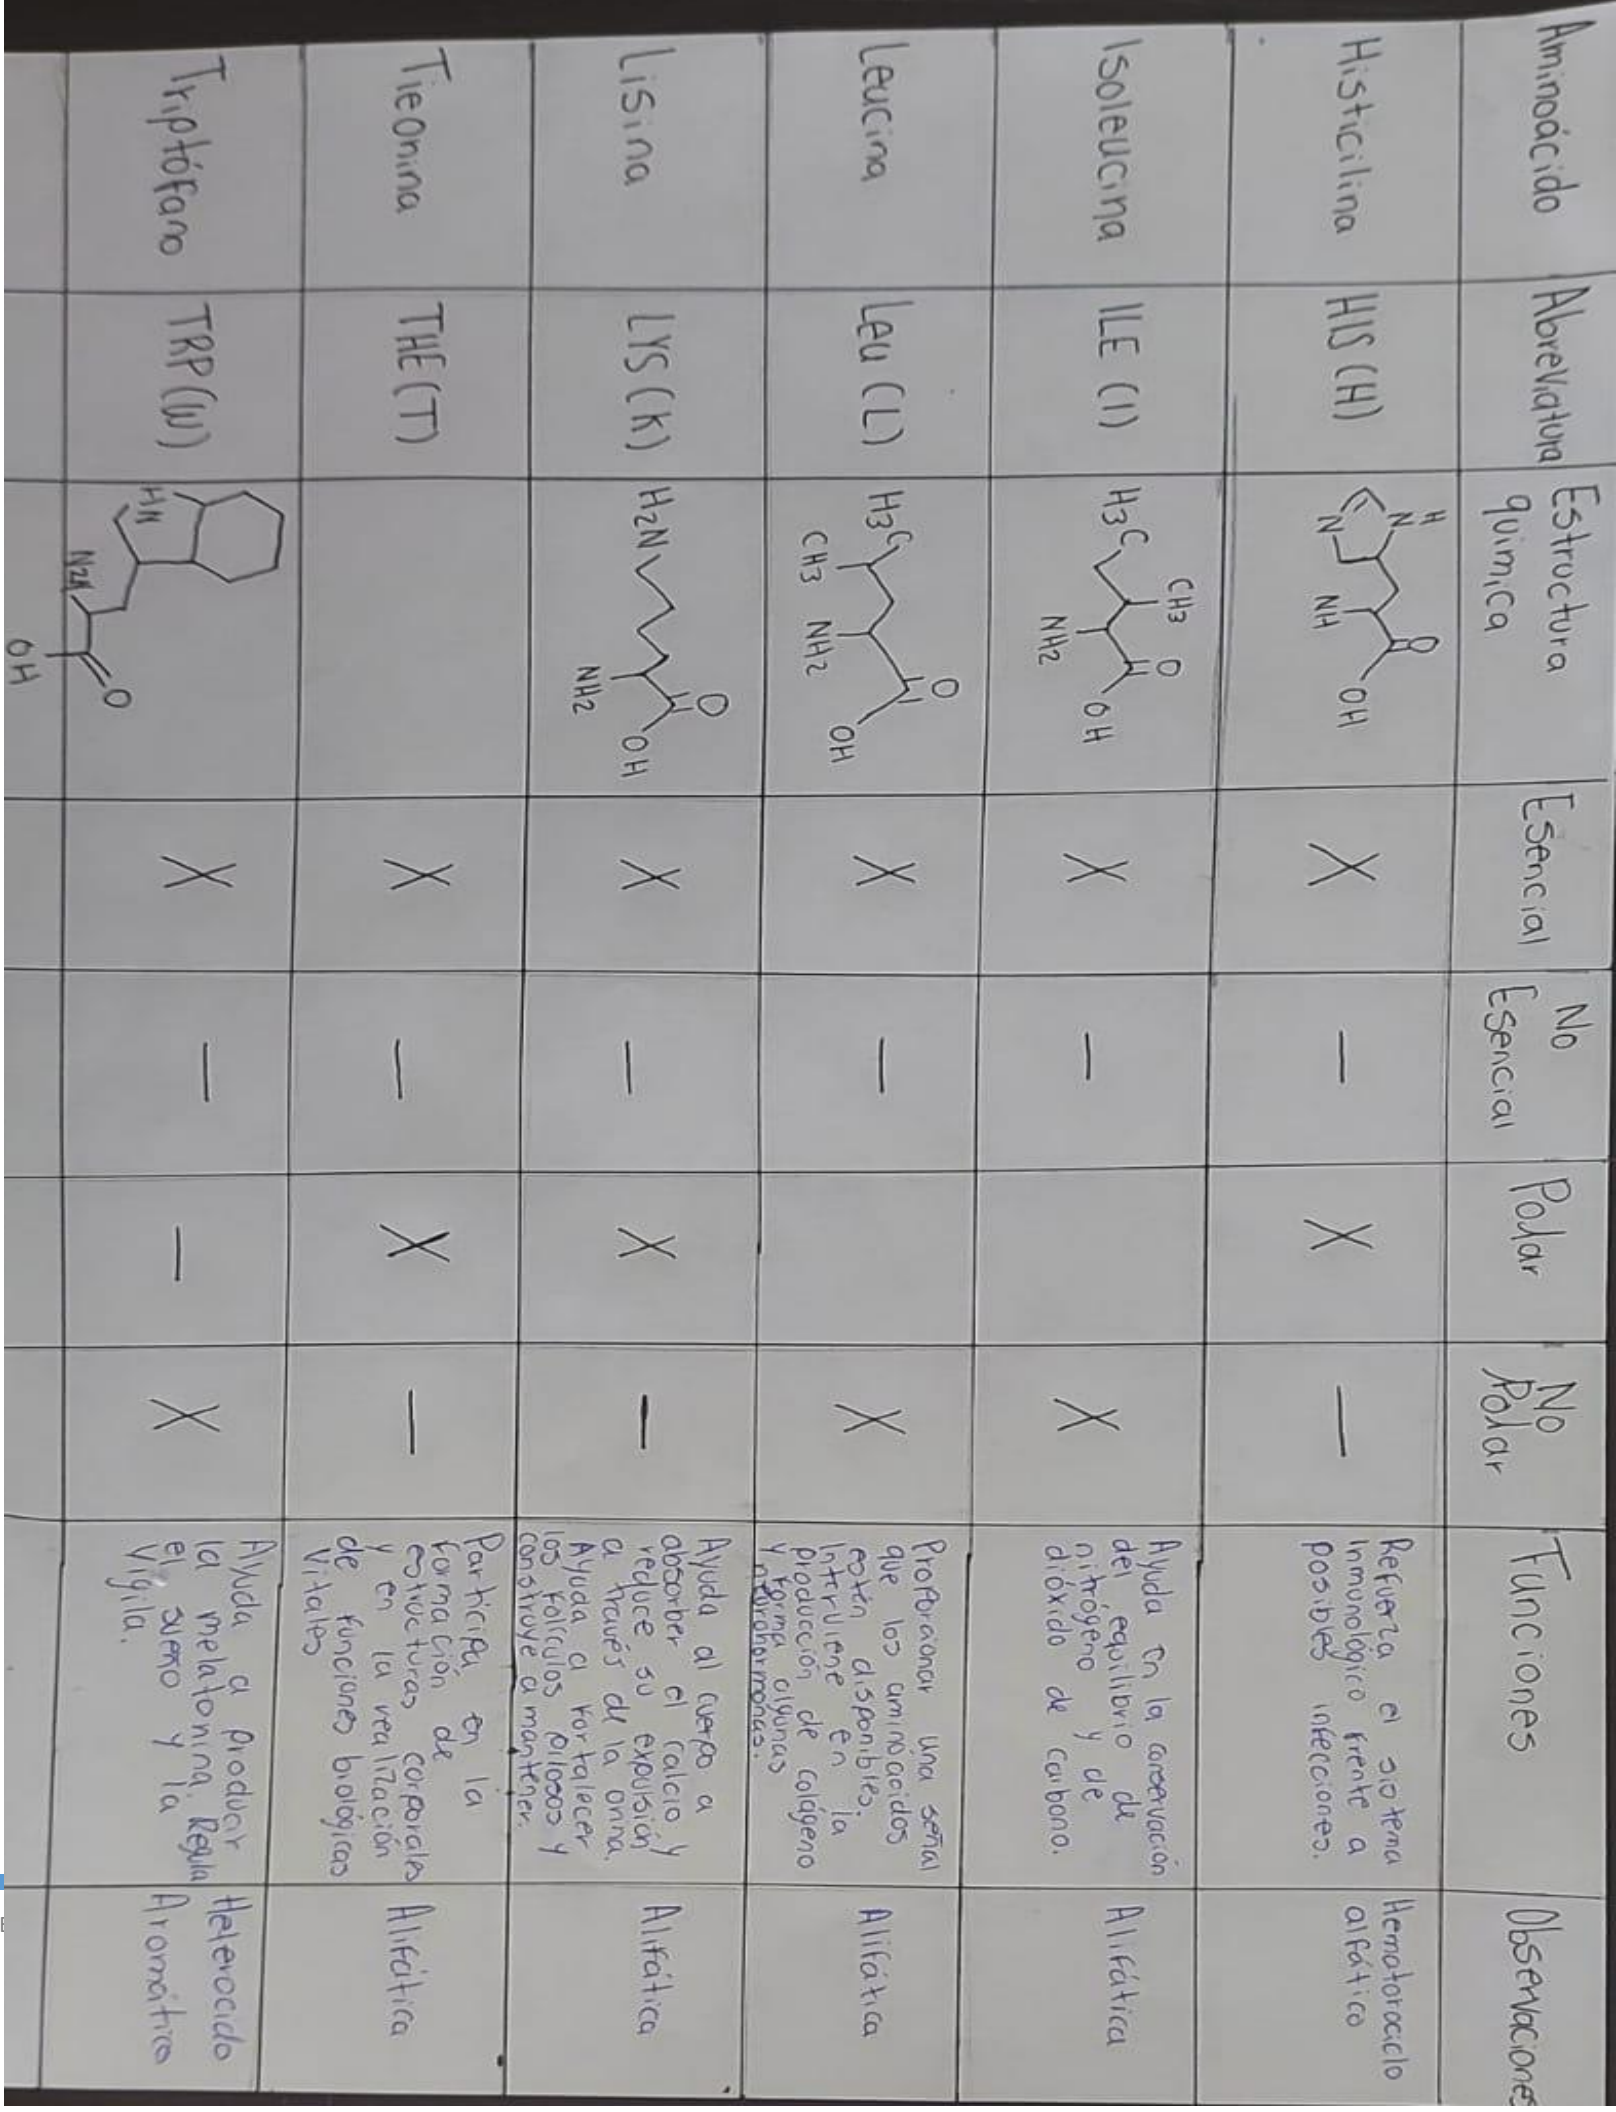 Aminoácido
Abreviatura
Estructura
química
Esencial
No
Esencial
Polar
No
Polar
Funciones
Observaciones
Histicilina
HIS (H)
H
N
N
NH
O
OH
X
—
X
—
Refuerza el sistema
inmunológico frente a
posibles infecciones.
Hematorociclo
alfático
Isoleucina
ILE (I)
H3C
CH3
NH2
O
OH
X
—
X
Ayuda en la conservación
del equilibrio de
nitrógeno y de
dióxido de carbono.
Alifática
Leucina
Leu (L)
H3C
CH3
NH2
O
OH
X
—
X
Proporaionar una señal
que los aminoácidos
estén disponibles.
Intruviene en la
producción de colágeno
y forma algunas
neurohormonas.
Alifática
Lisina
LYS (K)
H2N
NH2
O
OH
X
—
X
—
Ayuda al cuerpo a
absorber el calcio y
reduce su expulsión
a través de la orina.
Ayuda a fortalecer
los folículos pilosos y
construye a mantener.
Alifática
Tieonina
THE (T)
X
—
X
—
Participa en la
formación de
estructuras corporales
y en la realización
de funciones biológicas
vitales
Alifática
Triptófano
TRP (W)
HN
N2H
O
OH
X
—
—
X
Ayuda a producir
la melatonina. Regula
el sueño y la
vigila.
Heterocido
Aromático